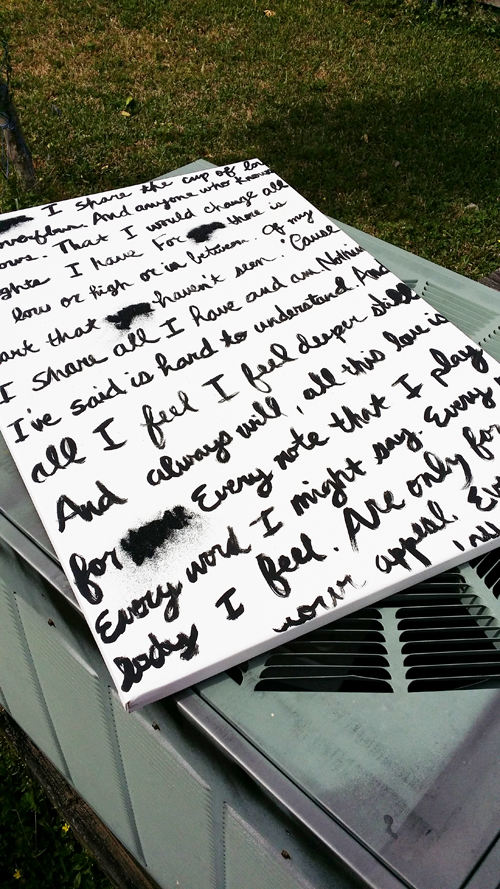 I share the cup of
overflow. And anyone who knows
ours. That I would change all
I have For there is
low or high or in between. Of my
that haven't seen. 'Cause
I share all I have and am. Nothin
I've said is hard to understand. And
all I feel I feel deeper still
And always will, all this love is
for Every note that I play
Every word I might say. Every
I feel. Are only for
your appeal.